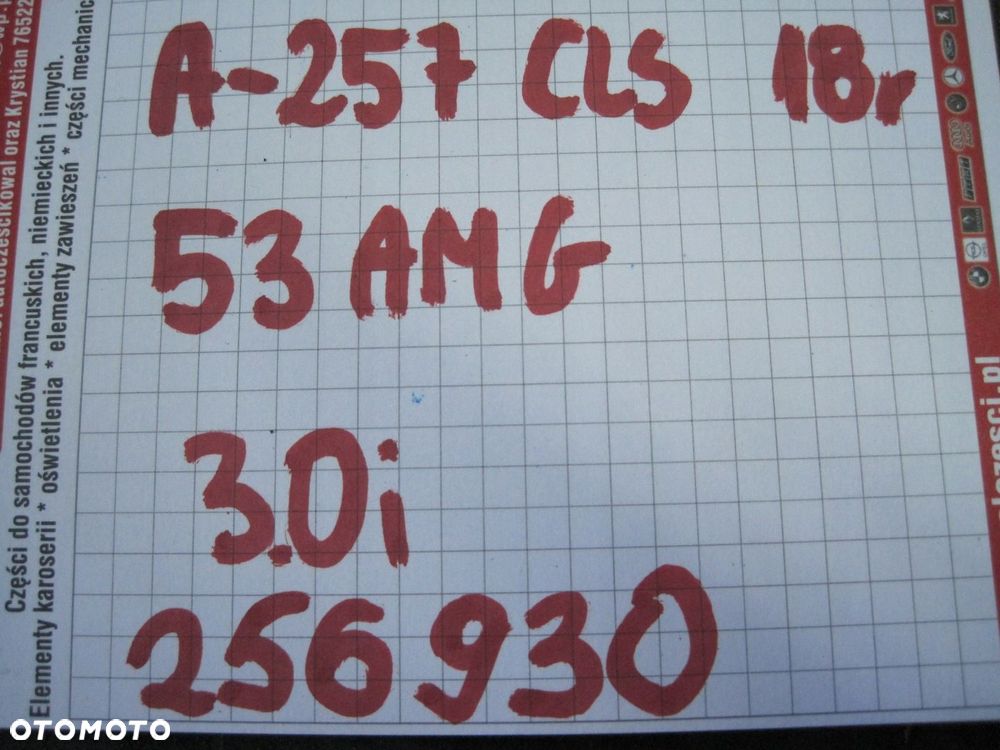 A-257 CLS 18r
53 AMG
3.0i
256930
autoczescikowal oraz Krystian 76522
Części do samochodów francuskich, niemieckich i innych.
Elementy karoserii * oświetlenia * elementy zawieszeń * części mechanic
esci.pl
OTOMOTO